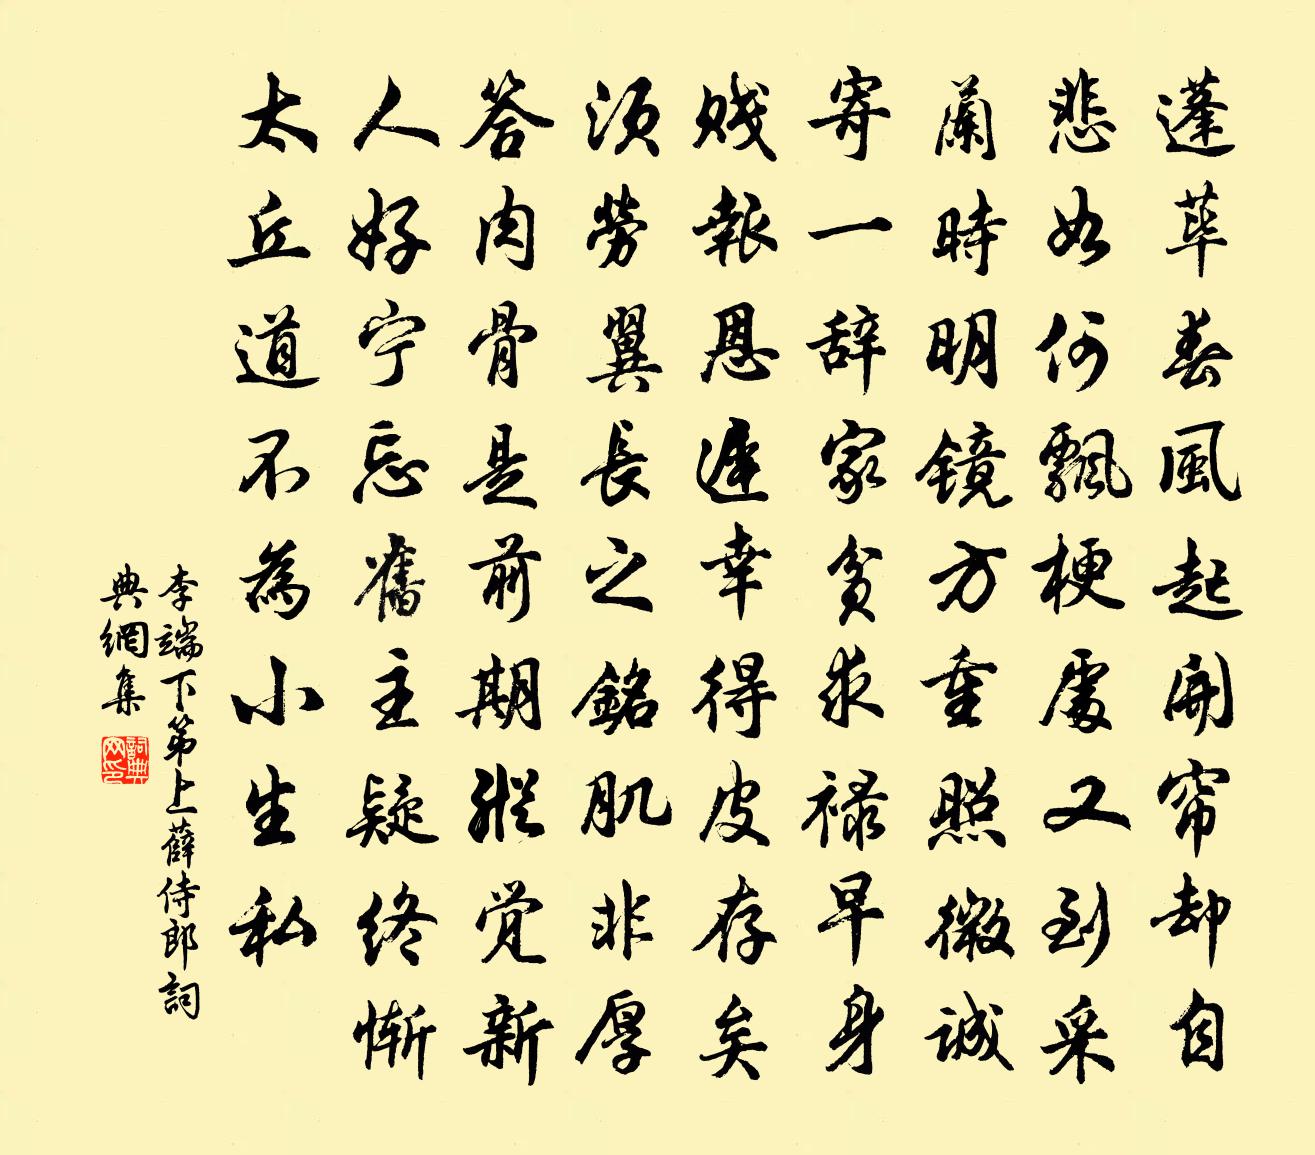 蓬荜春風起開帘却自
悲如何飄梗處又到采
蘭時明镜方重照微誠
寄一辞家贫求禄早身
贱報恩遲幸得皮存矣
须勞翼長之銘肌非厚
答肉骨是前期縱觉新
人好宁忘舊主疑终惭
太丘道不為小生私
李端下第上薛侍郎詞
典網集
詞典
网印